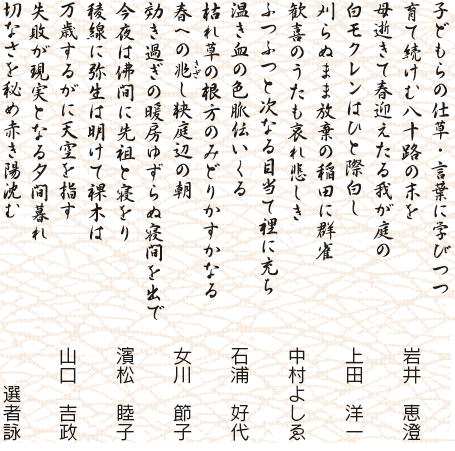 子どもらの仕草・言葉に学びつつ
育て続けむ八十路の末を
岩井　恵澄
母逝きて春迎えたる我が庭の
白モクレンはひと際白し
上田　洋一
刈らぬまま放棄の稲田に群雀
歓喜のうたも哀れ悲しき
中村よしゑ
ふつふつと次なる目当て裡に充ち
温き血の色脈伝いくる
石浦　好代
枯れ草の根方のみどりかすかなる
春への兆し狭庭辺の朝
女川　節子
効き過ぎの暖房ゆずらぬ寝間を出で
今夜は佛間に先祖と寝をり
濱松　睦子
稜線に弥生は明けて裸木は
万歳するがに天空を指す
山口　吉政
失敗が現実となる夕間暮れ
切なさを秘め赤き陽沈む
選者詠